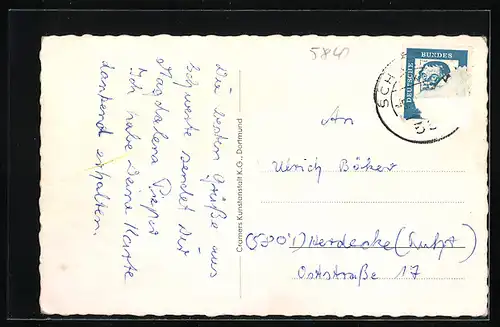 Die besten Grüße aus
Schwerte sendet Dir
Magdalena Pieper
Ich habe Deine Karte
dankend erhalten.
Cramers Kunstanstalt K.G., Dortmund
5841
DEUTSCHE
BUNDES
SCH
5841
An
Ulrich Böker
(5804) Herdecke (Ruhr)
Oststraße 17